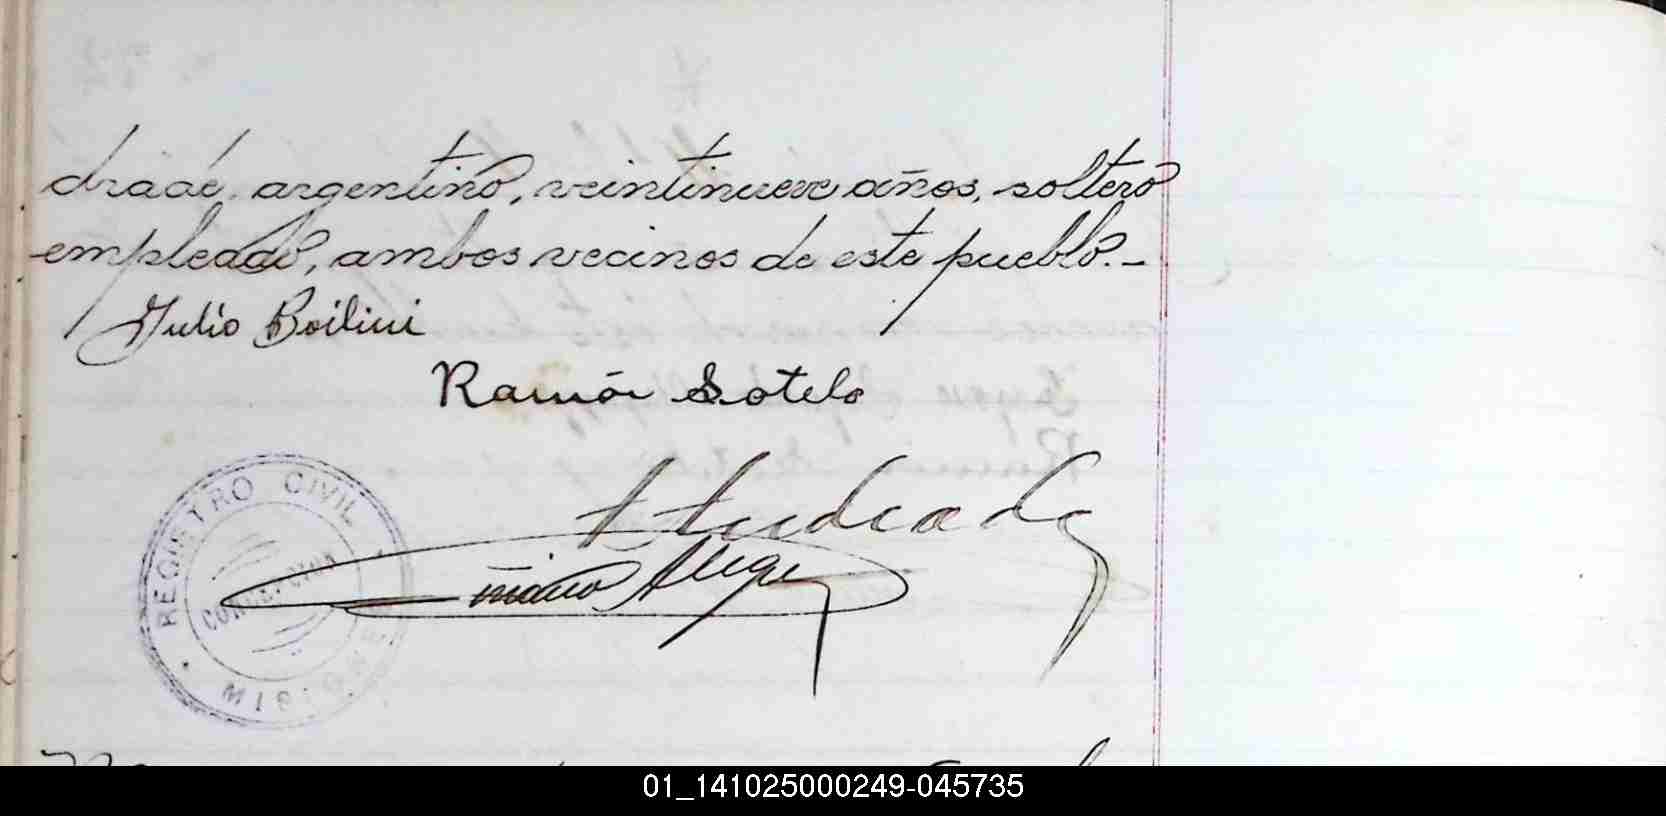 drade, argentino, veintinueve años, soltero
empleado, ambos vecinos de este pueblo.-
Julio Boilini
Ramón Sotelo
REGISTRO CIVIL
CONCEPCION
MISIONES
01_141025000249-045735